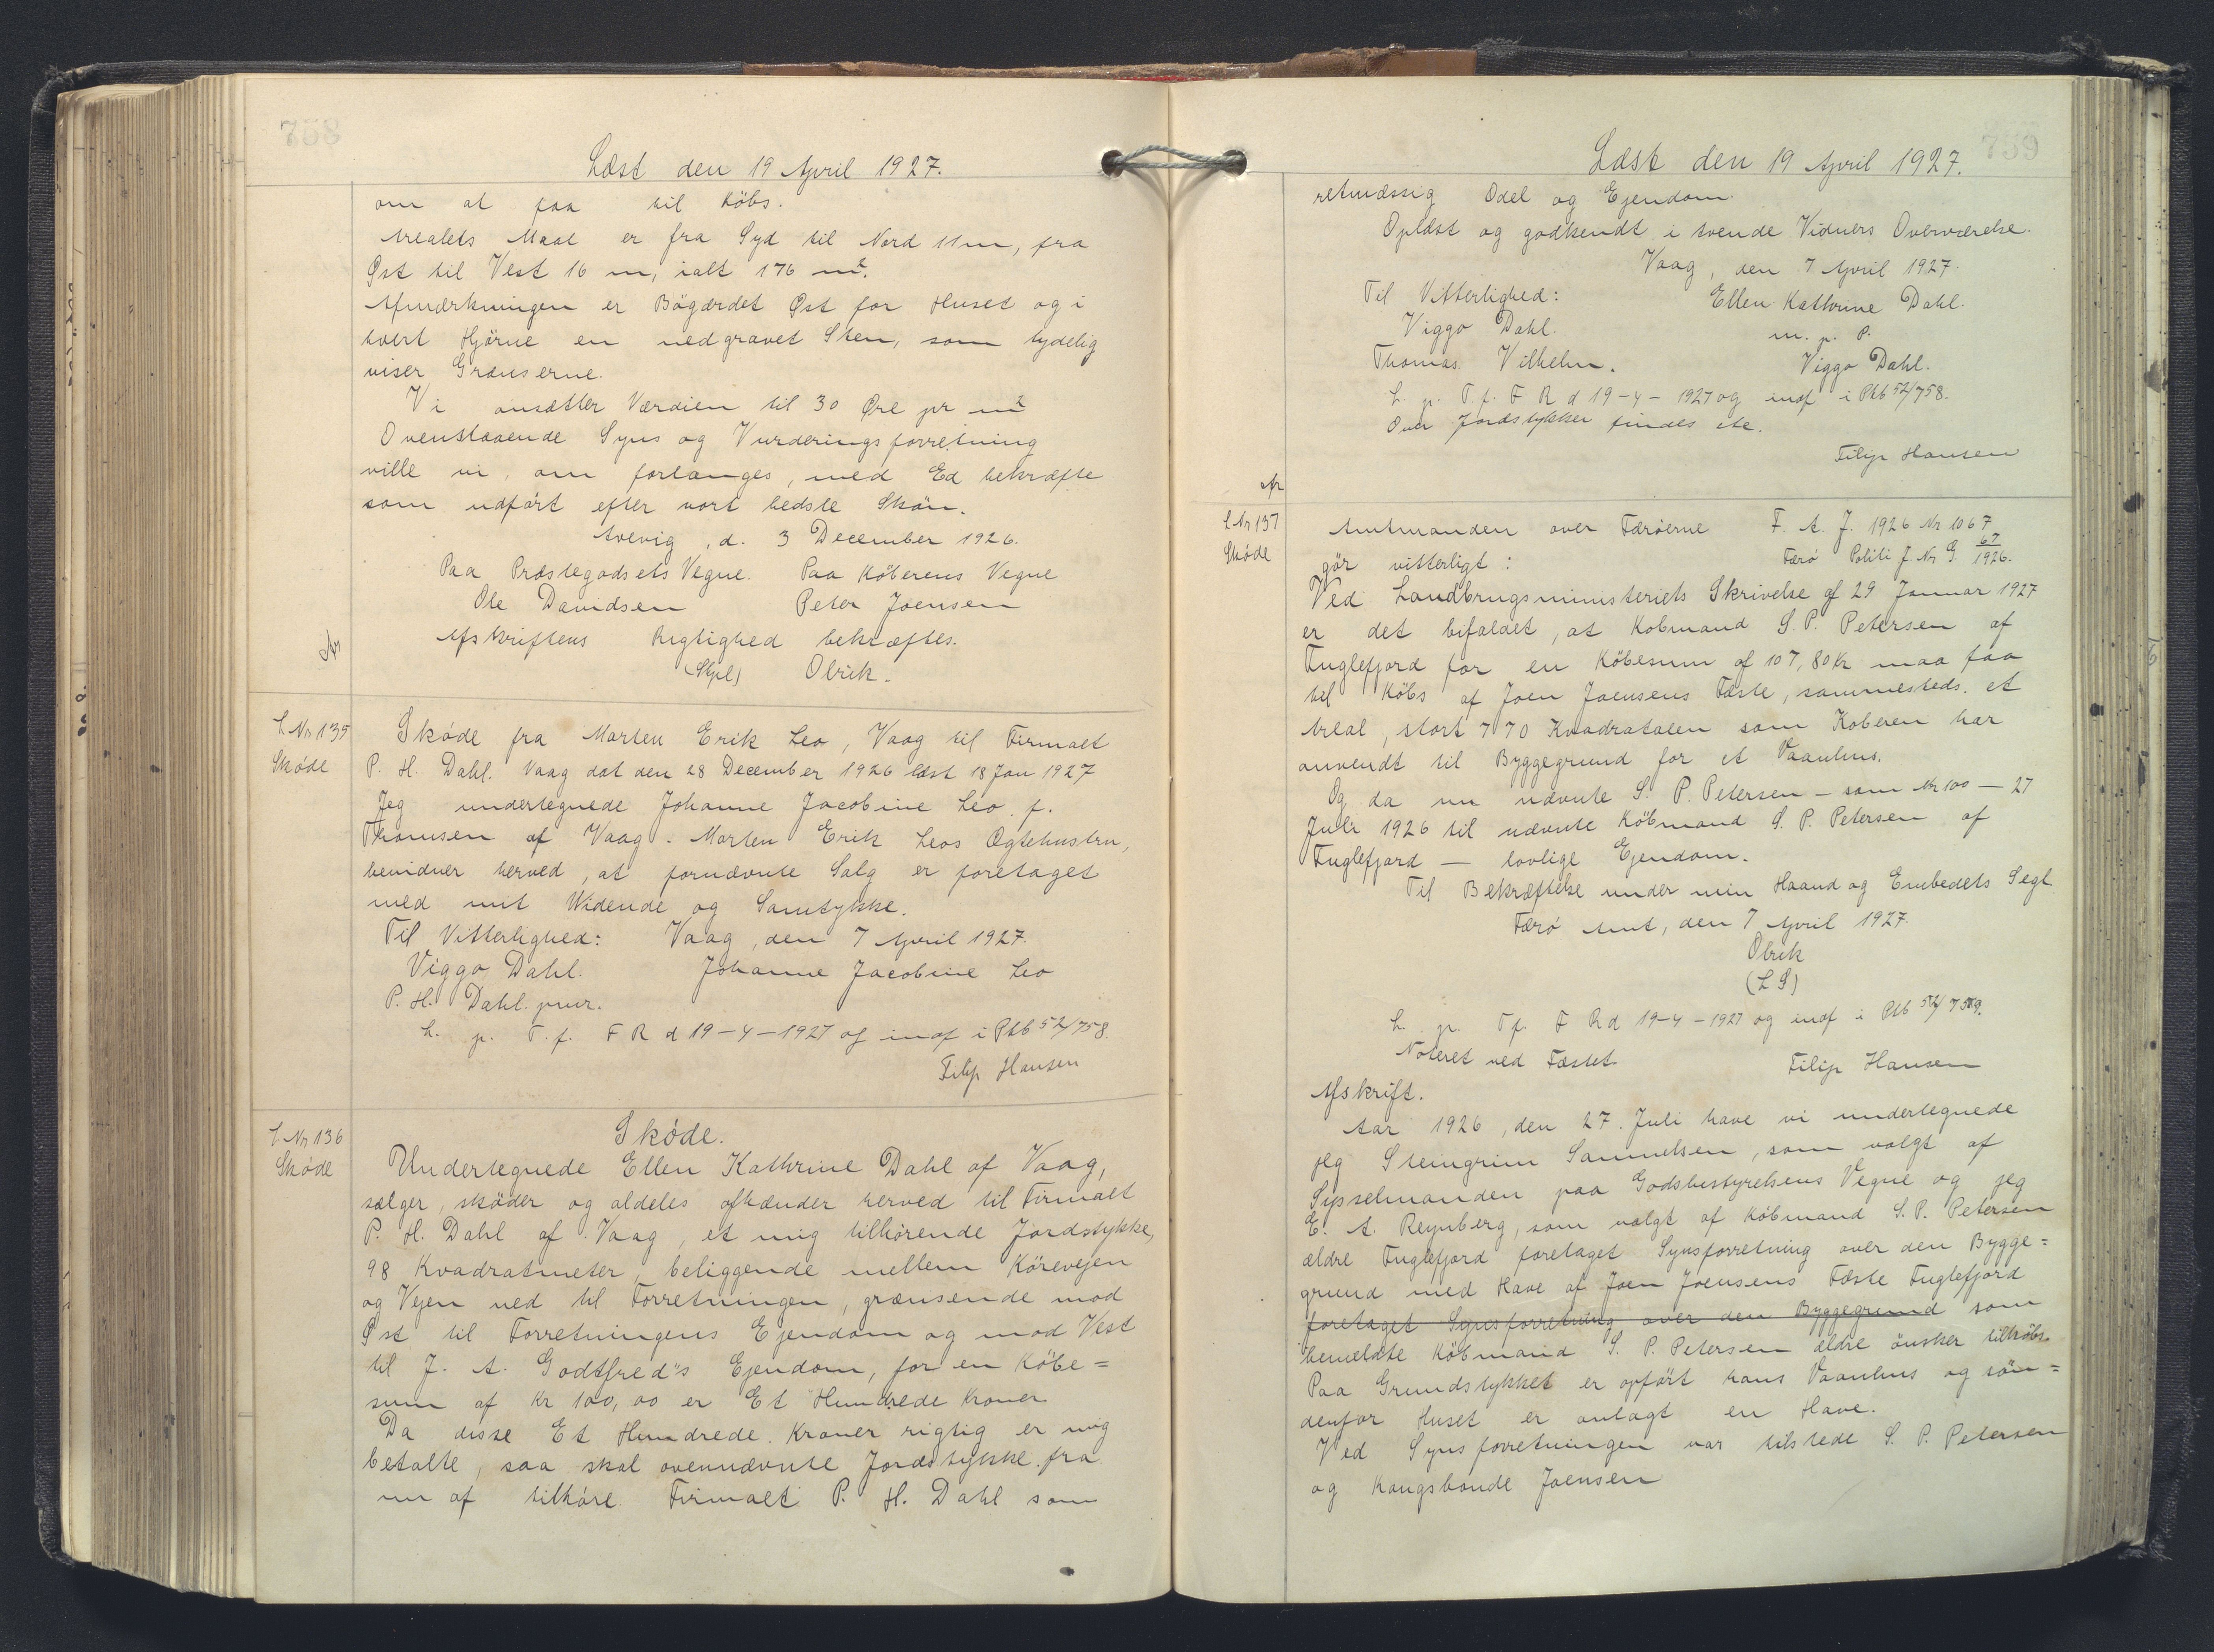 758
Læst den 19 April 1927.
om at faa til Köbs.
Arealets Maal er fra Syd til Nord 11 m, fra
Øst til Vest 16 m, ialt 176 m².
Afmærkningen er Bögærdet Øst for Huset og i
hvert Hjörne en nedgravet Sten, som tydelig
viser Grænserne.
Vi ansætter Værdien til 30 Øre pr m²
Ovenstaaende Syns og Vurderingsforretning
ville vi, om forlanges, med Ed bekræfte
som udfört efter vort bedste Skön.
Avevig, d. 3 December 1926.
Paa Præstegodsets Vegne. Paa Köberens Vegne
Ole Davidsen Peter Joensen
Afskriftens Rigtighed bekræftes.
(Skpl) Olrik.
L Nr 135
Sköde
Sköde fra Morten Erik Leo, Vaag til Firmaet
P. H. Dahl. Vaag dat den 28 December 1926 læst 18 Jan 1927
Jeg undertegnede Johanne Jacobine Leo f.
Thomsen af Vaag - Morten Erik Leos Ægtehustru,
bevidner herved, at fornævnte Salg er foretaget
med mit Widende og Samtykke.
Til Vitterlighed: Vaag, den 7 April 1927.
Viggo Dahl. Johanne Jacobine Leo
P. H. Dahl. junr.
L. p. T. f. F R d 19-4-1927 og indf i Ptb 52/758.
Filip Hansen
L Nr 136
Sköde
Sköde.
Undertegnede Ellen Kathrine Dahl af Vaag,
sælger, sköder og aldeles afhænder herved til Firmaet
P. H. Dahl af Vaag, et mig tilhörende Jordstykke,
98 Kvadratmeter, beliggende mellem Körevejen
og Vejen ned til Forretningen, grænsende mod
Øst til Forretningens Ejendom og mod Vest
til J. A. Godtfred"s Ejendom, for en Köbe=
sum af Kr 100,00 er Et Hundrede Kroner
Da disse Et Hundrede Kroner rigtig er mig
betalte, saa skal ovennævnte Jordstykke fra
nu af tilhöre Firmaet P. H. Dahl som
759
Læst den 19 April 1927.
retmæssig Odel og Ejendom.
Oplæst og godkendt i tvende Vidners Overværelse.
Vaag, den 7 April 1927.
Til Vitterlighed: Ellen Kathrine Dahl.
Viggo Dahl. m. p. P.
Thomas Vilhelm. Viggo Dahl.
L. p. T. f. F R d 19-4-1927 og indf i Ptb 52/758.
Over Jordstykker findes ite.
Filip Hansen
L Nr 137
Sköde
Amtmanden over Færöerne F. A. J. 1926 Nr 1067
gör vitterligt: Færö Politi J. Nr G 67/1926.
Ved Landbrugsministeriets Skrivelse af 29 Januar 1927
er det bifaldet, at Kobmand S. P. Petersen af
Fuglefjord for en Köbesum af 107,80 Kr maa faa
til Köbs af Joen Joensens Fæste, sammesteds. et
Areal, stort 770 Kvadratalen som Koberen har
anvendt til Byggegrund for et Vaanhus.
Og da nu nævnte S. P. Petersen - som Nr 100 - 27
Juli 1926 til nævnte Köbmand S. P. Petersen af
Fuglefjord - lovlige Ejendom.
Til Bekræftelse under min Haand og Embedets Segl
Færö Amt, den 7 April 1927.
Olrik
(L S)
L. p. T f. F R d 19-4-1927 og indf i Ptb 52/759.
Noteret ved Fæstet
Filip Hansen
Afskrift.
Aar 1926, den 27. Juli have vi undertegnede
jeg Steingrim Samuelsen, som valgt af
Sysselmanden paa Godsbestyrelsens Vegne og jeg
E. A. Reynberg, som valgt af Köbmand S. P. Petersen
ældre Fuglefjord foretaget Synsforretning over den Bygge=
grund med Have af Joen Joensens Fæste Fuglefjord
foretaget Synsforretning over den Byggegrund som
bemeldte Köbmand S. P. Petersen ældre önsker tilköbs.
Paa Grundstykket er opfört hans Vaanhus og sön=
denfor Huset er anlagt en Have.
Ved Synsforretningen var tilstede S. P. Petersen
og Kongsbonde Joensen